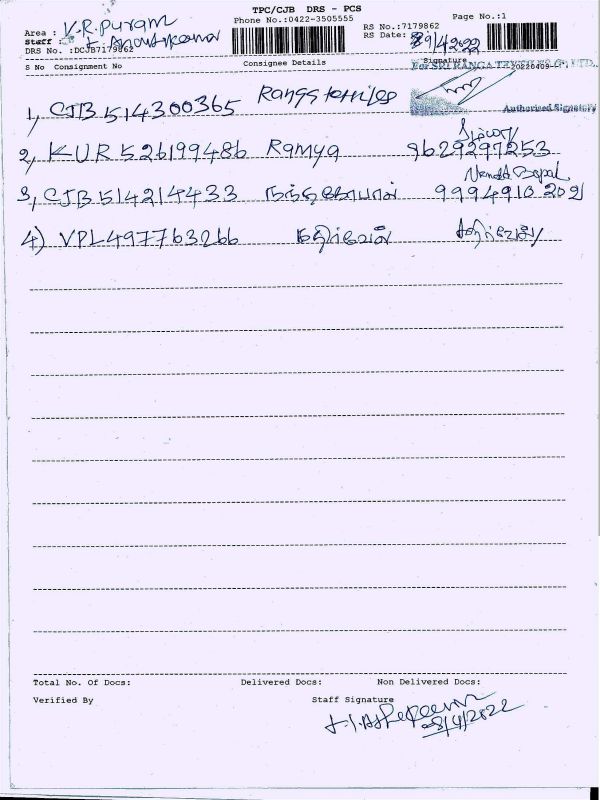 TPC/CJB DRS - PCS
Phone No.:0422-3505555
Page No.:1
Area : K.R.Puram
RS No.:7179862
Staff :
RS Date: 8/4/2022
DRS No. :DCJB7179862
S No Consignment No Consignee Details Signature
For SRI RANGA TEXTILES (P) LTD.
1, CJB 514300365
Authorised Signatory
2, KUR 526199486 Ramya 9629297253
3, CJB 514214433 நந்தகோபால் 9994910202
4) VPL497763266 கதிர்வேல் கதிர்வேல்
Total No. Of Docs: Delivered Docs: Non Delivered Docs:
Verified By Staff Signature
8/4/2022